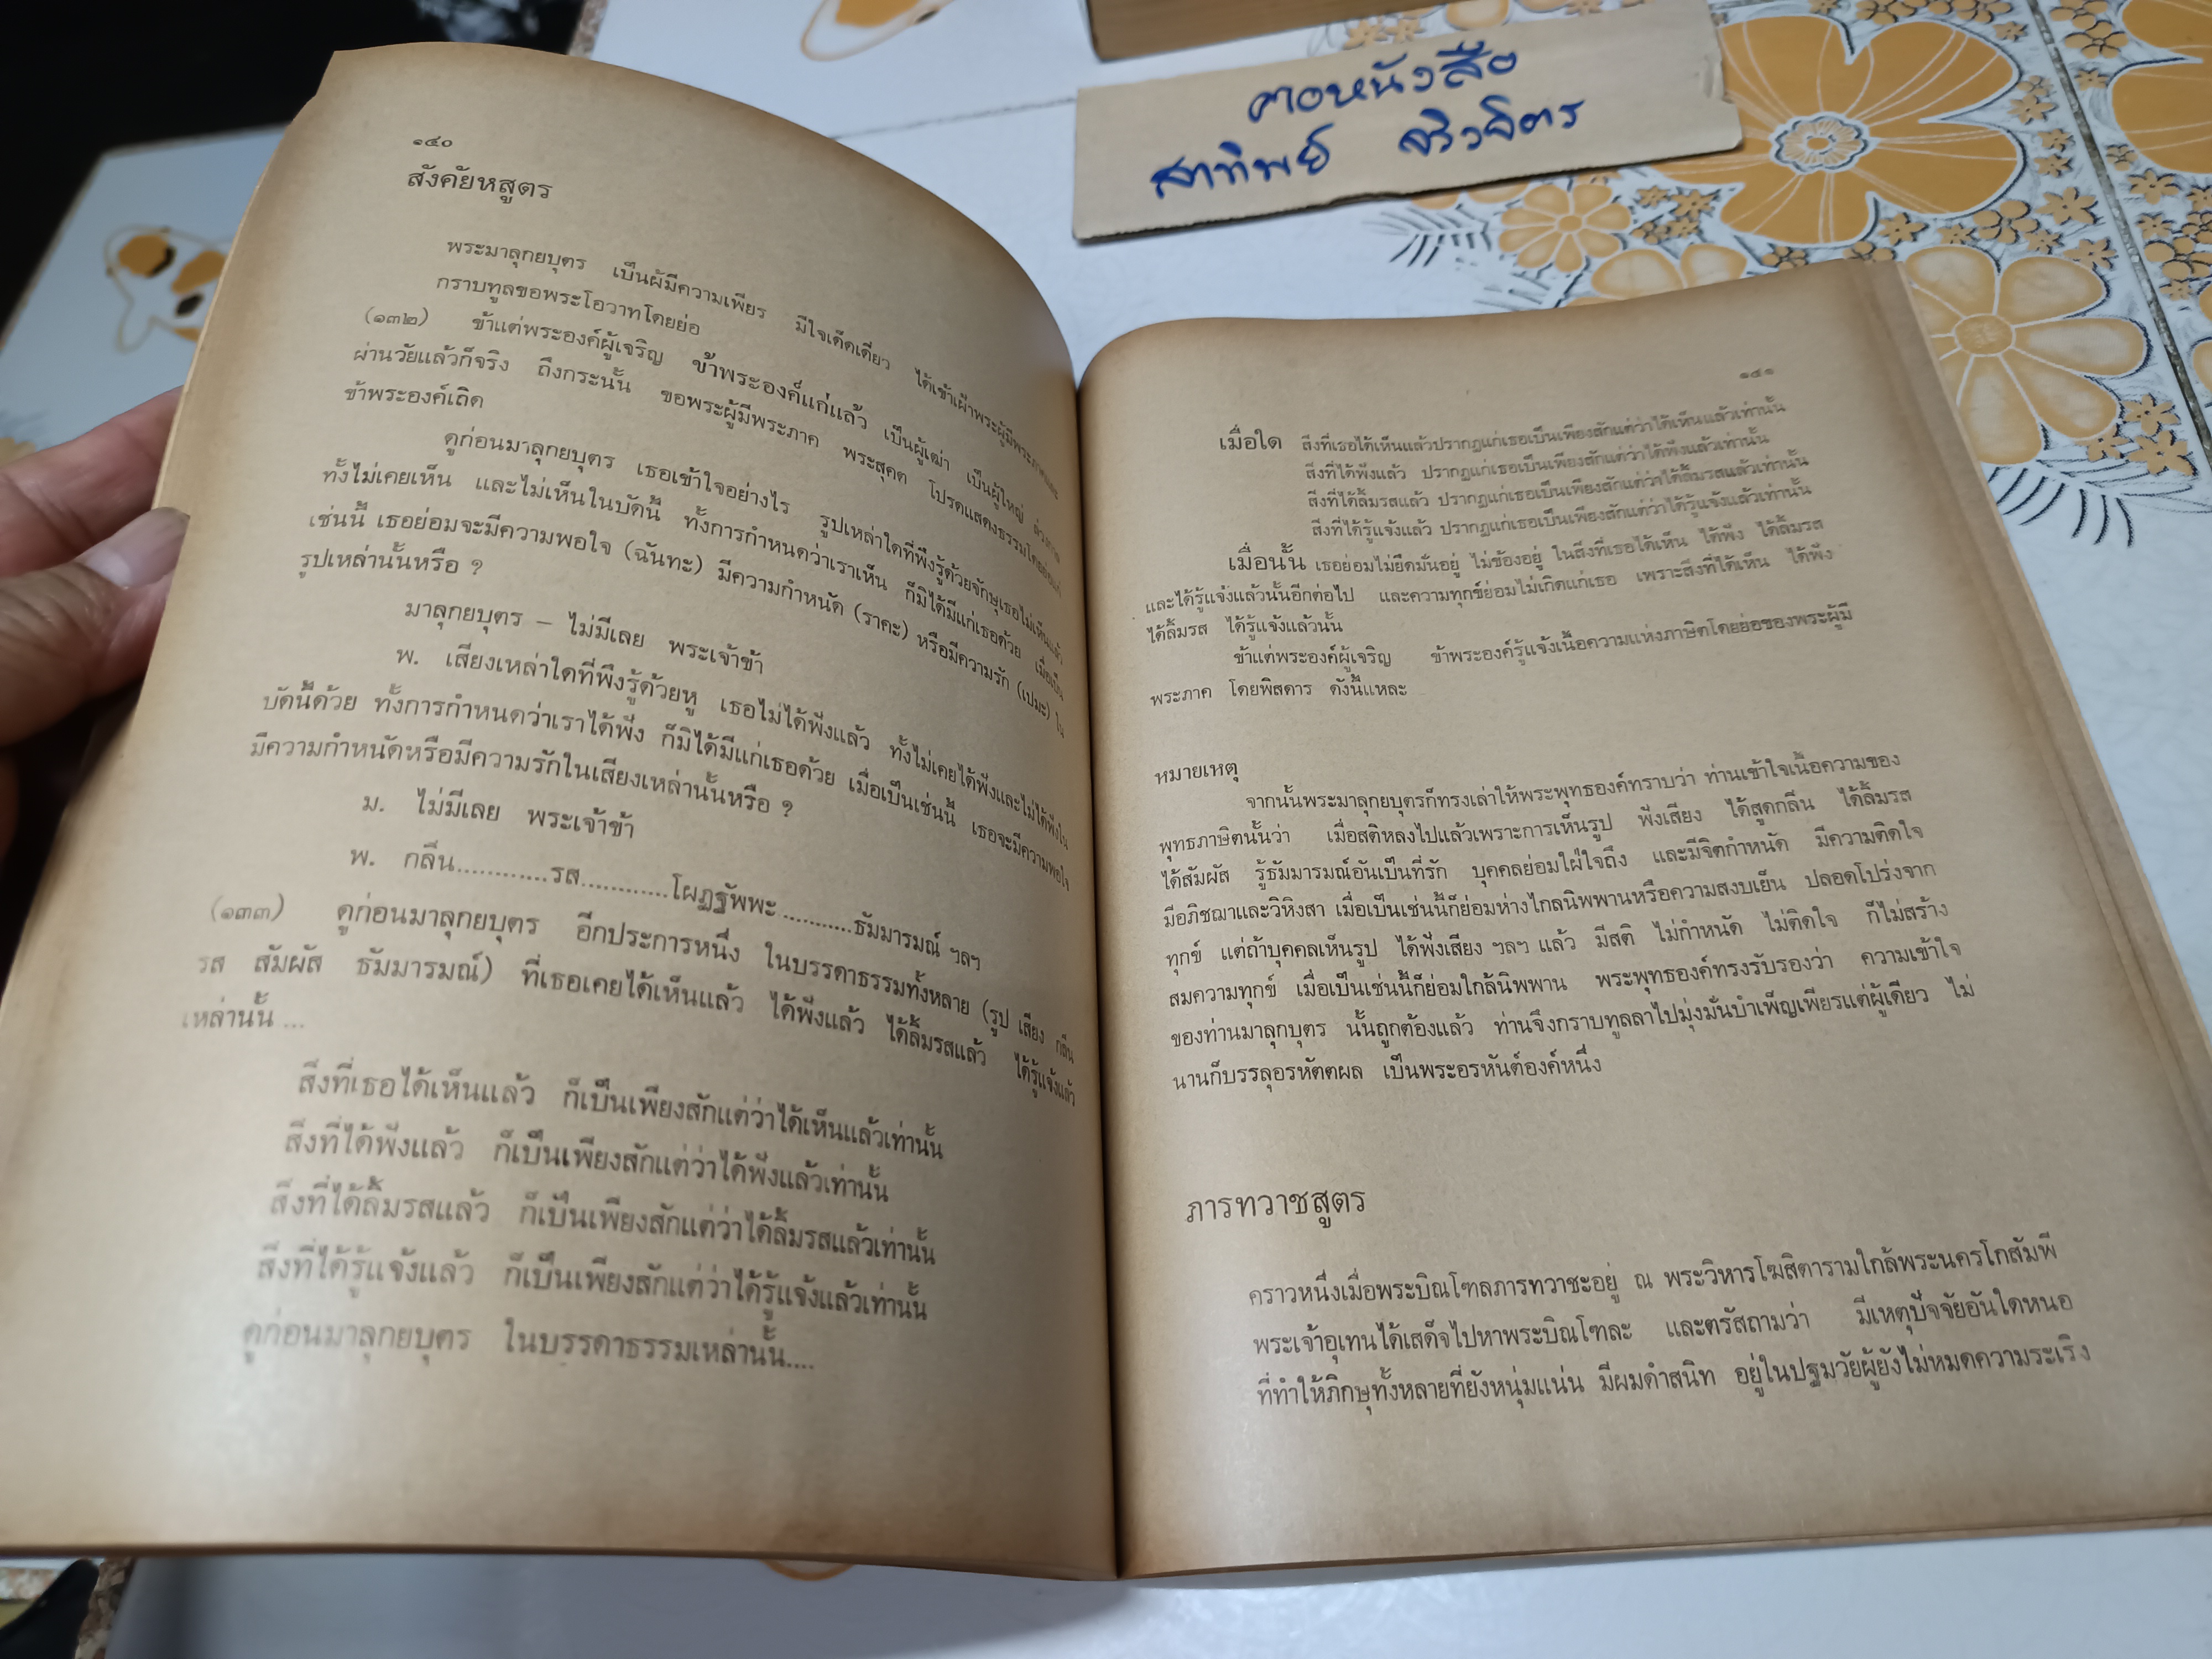 คาอหนังสือ
สาทิพย์
๑๔๐
สังคัยหสูตร
พระมาลุกยบุตร เป็นผู้มีความเพียร มีใจเด็ดเดี่ยว ได้เข้าเฝ้าพระผู้มีพระภาคและ
กราบทูลขอพระโอวาทโดยย่อ
(๑๓๒) ข้าแต่พระองค์ผู้เจริญ ข้าพระองค์แก่แล้ว เป็นผู้เฒ่า เป็นผู้ใหญ่ ล่วงกาล
ผ่านวัยแล้วก็จริง ถึงกระนั้น ขอพระผู้มีพระภาค พระสุคต โปรดแสดงธรรมโดยย่อแก่
ข้าพระองค์เถิด
ดูก่อนมาลุกยบุตร เธอเข้าใจอย่างไร รูปเหล่าใดที่พึงรู้ด้วยจักษุเธอไม่เห็นแล้ว
ทั้งไม่เคยเห็น และไม่เห็นในบัดนี้ ทั้งการกำหนดว่าเราเห็น ก็มิได้มีแก่เธอด้วย เมื่อเป็น
เช่นนี้ เธอย่อมจะมีความพอใจ (ฉันทะ) มีความกำหนัด (ราคะ) หรือมีความรัก (เปมะ) ใน
รูปเหล่านั้นหรือ ?
มาลุกยบุตร – ไม่มีเลย พระเจ้าข้า
พ. เสียงเหล่าใดที่พึงรู้ด้วยหู เธอไม่ได้ฟังแล้ว ทั้งไม่เคยได้ฟังและไม่ได้ฟังใน
บัดนี้ด้วย ทั้งการกำหนดว่าเราได้ฟัง ก็มิได้มีแก่เธอด้วย เมื่อเป็นเช่นนี้ เธอจะมีความพอใจ
มีความกำหนัดหรือมีความรักในเสียงเหล่านั้นหรือ ?
ม. ไม่มีเลย พระเจ้าข้า
พ. กลิ่น............รส............โผฏฐัพพะ..........ธัมมารมณ์ ฯลฯ
(๑๓๓) ดูก่อนมาลุกยบุตร อีกประการหนึ่ง ในบรรดาธรรมทั้งหลาย (รูป เสียง กลิ่น
รส สัมผัส ธัมมารมณ์) ที่เธอเคยได้เห็นแล้ว ได้ฟังแล้ว ได้ลิ้มรสแล้ว ได้รู้แจ้งแล้ว
เหล่านั้น ...
สิ่งที่เธอได้เห็นแล้ว ก็เป็นเพียงสักแต่ว่าได้เห็นแล้วเท่านั้น
สิ่งที่ได้ฟังแล้ว ก็เป็นเพียงสักแต่ว่าได้ฟังแล้วเท่านั้น
สิ่งที่ได้ลิ้มรสแล้ว ก็เป็นเพียงสักแต่ว่าได้ลิ้มรสแล้วเท่านั้น
สิ่งที่ได้รู้แจ้งแล้ว ก็เป็นเพียงสักแต่ว่าได้รู้แจ้งแล้วเท่านั้น
ดูก่อนมาลุกยบุตร ในบรรดาธรรมเหล่านั้น....
๑๔๑
เมื่อใด สิ่งที่เธอได้เห็นแล้วปรากฏแก่เธอเป็นเพียงสักแต่ว่าได้เห็นแล้วเท่านั้น
สิ่งที่ได้ฟังแล้ว ปรากฏแก่เธอเป็นเพียงสักแต่ว่าได้ฟังแล้วเท่านั้น
สิ่งที่ได้ลิ้มรสแล้ว ปรากฏแก่เธอเป็นเพียงสักแต่ว่าได้ลิ้มรสแล้วเท่านั้น
สิ่งที่ได้รู้แจ้งแล้ว ปรากฏแก่เธอเป็นเพียงสักแต่ว่าได้รู้แจ้งแล้วเท่านั้น
เมื่อนั้น เธอย่อมไม่ยึดมั่นอยู่ ไม่ข้องอยู่ ในสิ่งที่เธอได้เห็น ได้ฟัง ได้ลิ้มรส
และได้รู้แจ้งแล้วนั้นอีกต่อไป และความทุกข์ย่อมไม่เกิดแก่เธอ เพราะสิ่งที่ได้เห็น ได้ฟัง
ได้ลิ้มรส ได้รู้แจ้งแล้วนั้น
ข้าแต่พระองค์ผู้เจริญ ข้าพระองค์รู้แจ้งเนื้อความแห่งภาษิตโดยย่อของพระผู้มี
พระภาค โดยพิสดาร ดังนี้แหละ
หมายเหตุ
จากนั้นพระมาลุกยบุตรก็ทรงเล่าให้พระพุทธองค์ทราบว่า ท่านเข้าใจเนื้อความของ
พุทธภาษิตนั้นว่า เมื่อสติหลงไปแล้วเพราะการเห็นรูป ฟังเสียง ได้สูดกลิ่น ได้ลิ้มรส
ได้สัมผัส รู้ธัมมารมณ์อันเป็นที่รัก บุคคลย่อมใฝ่ใจถึง และมีจิตกำหนัด มีความติดใจ
มีอภิชฌาและวิหิงสา เมื่อเป็นเช่นนี้ก็ย่อมห่างไกลนิพพานหรือความสงบเย็น ปลอดโปร่งจาก
ทุกข์ แต่ถ้าบุคคลเห็นรูป ได้ฟังเสียง ฯลฯ แล้ว มีสติ ไม่กำหนัด ไม่ติดใจ ก็ไม่สร้าง
สมความทุกข์ เมื่อเป็นเช่นนี้ก็ย่อมใกล้นิพพาน พระพุทธองค์ทรงรับรองว่า ความเข้าใจ
ของท่านมาลุกบุตร นั้นถูกต้องแล้ว ท่านจึงกราบทูลลาไปมุ่งมั่นบำเพ็ญเพียรแต่ผู้เดียว ไม่
นานก็บรรลุอรหัตตผล เป็นพระอรหันต์องค์หนึ่ง
ภารทวาชสูตร
คราวหนึ่งเมื่อพระบิณโฑลภารทวาชะอยู่ ณ พระวิหารโฆสิตารามใกล้พระนครโกสัมพี
พระเจ้าอุเทนได้เสด็จไปหาพระบิณโฑละ และตรัสถามว่า มีเหตุปัจจัยอันใดหนอ
ที่ทำให้ภิกษุทั้งหลายที่ยังหนุ่มแน่น มีผมดำสนิท อยู่ในปฐมวัยผู้ยังไม่หมดความระเริง